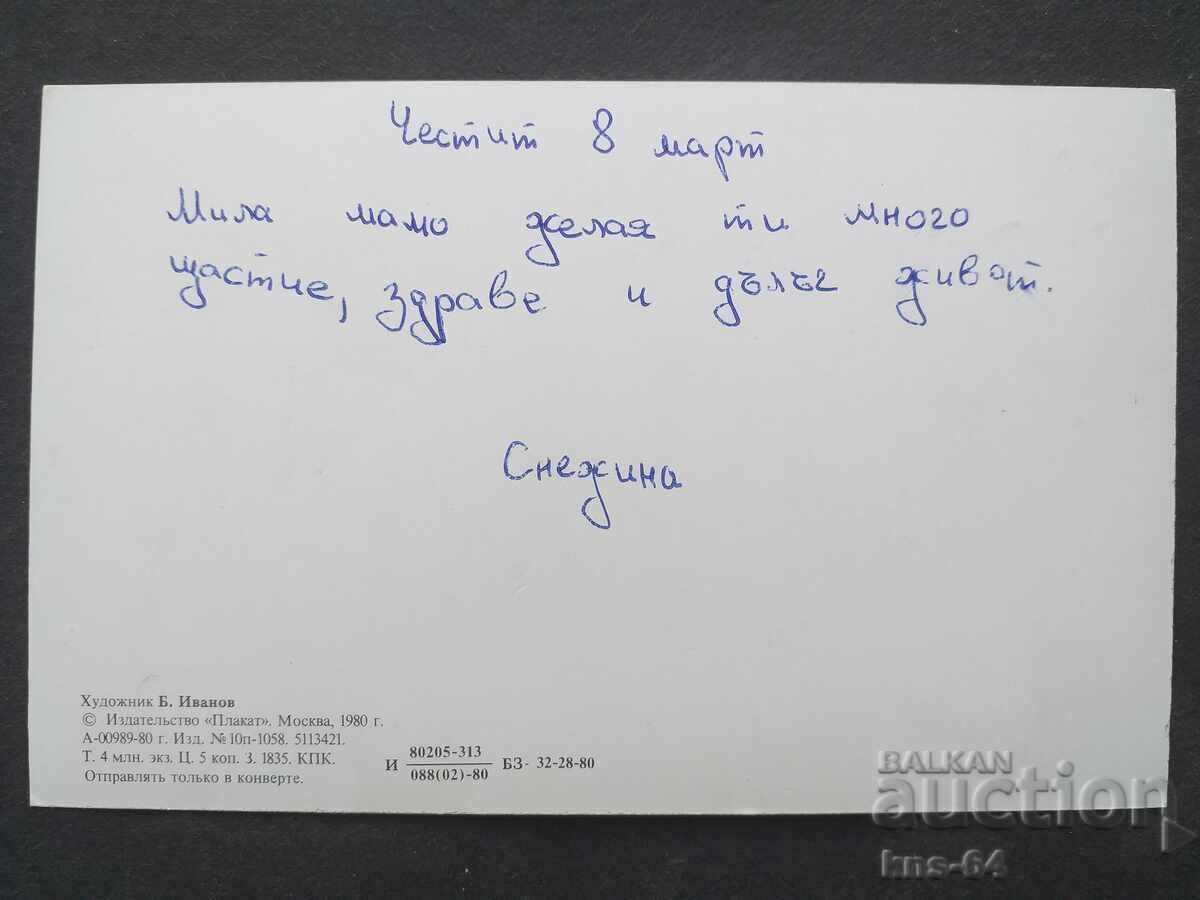 Честит 8 март
Мила мамо желая ти много
щастие, здраве и дълъг живот.
Снежина
Художник Б. Иванов
© Издательство «Плакат». Москва, 1980 г.
А-00989-80 г. Изд. № 10п-1058. 5113421.
Т. 4 млн. экз. Ц. 5 коп. З. 1835. КПК.
Отправлять только в конверте.
И 80205-313 / 088(02)-80 БЗ- 32-28-80
BALKAN
auction
kns-64